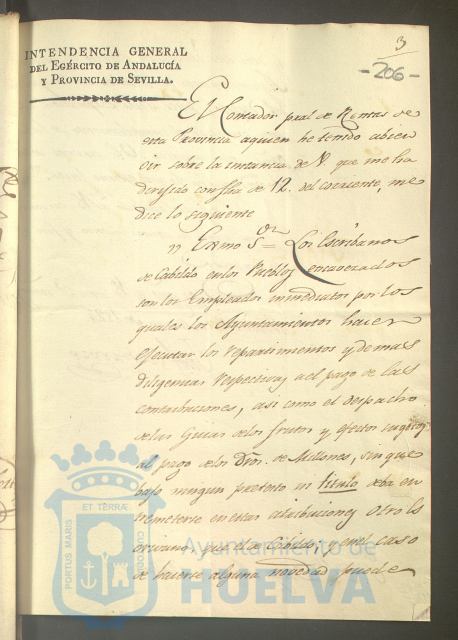 3
-206-
INTENDENCIA GENERAL
DEL EGÉRCITO DE ANDALUCÍA
Y PROVINCIA DE SEVILLA.
El Contador pral de Rentas de
esta Provincia aquien he tenido abien
oir sobre la instancia de V. que me ha
dirigido con fha de 12. del corriente, me
dice lo siguiente
" Exmo Sor = Los Escribanos
de Cabildo en los Pueblos encavezados
son los Empleados inmediatos por los
quales los Ayuntamientos hacen
ejecutar los repartimientos y demas
diligencias respectivas a el pago de las
contribuciones, asi como el despacho
de las Guias de los frutos y efectos sugetos
al pago de los Dros. de Millones, sin que
bajo ningun pretexto ni titulo deba en
tremeterse en estas atribuciones otro Es
crivano que el de Cabildo, y en el caso
de haverse alguna novedad puede
ET TERRÆ
PORTUS MARIS
CUSTODIA
Ayuntamiento de
HUELVA